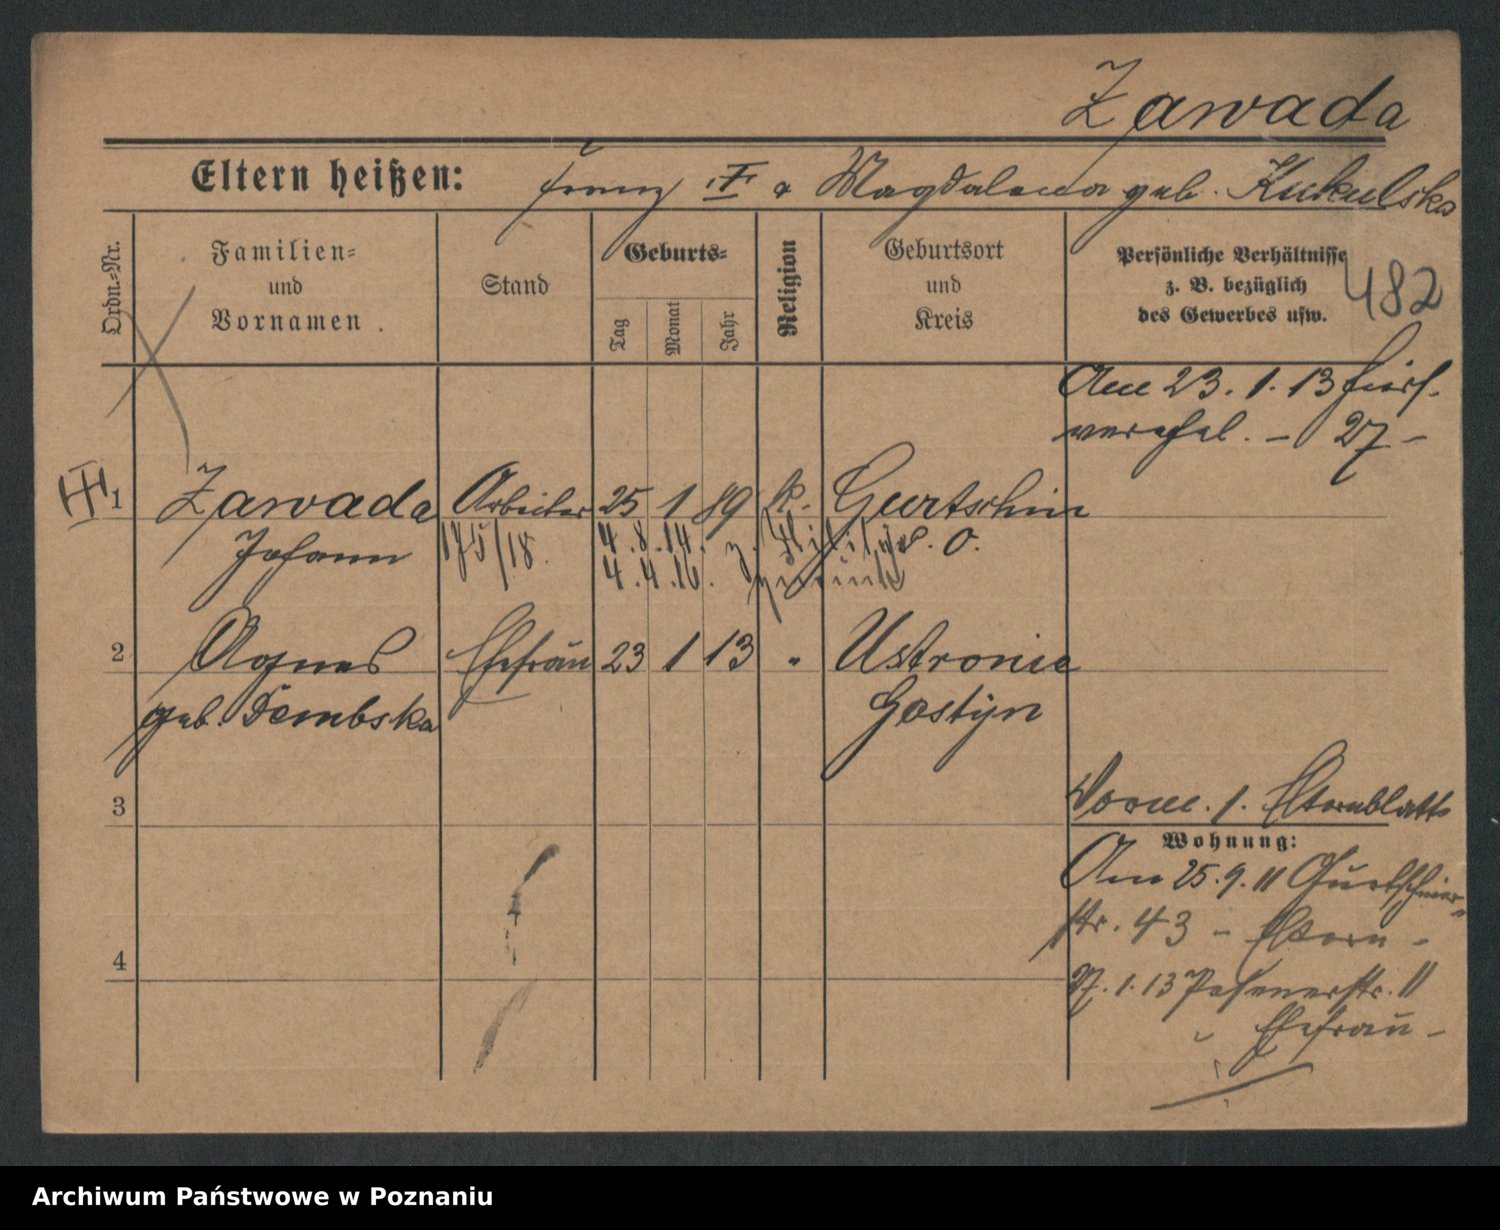 Zawada
Eltern heißen: Franz I & Magdalena geb. Kukulska
Ordn.-Nr.
Familien-
und
Vornamen.
Stand
Geburts-
Tag
Monat
Jahr
Religion
Geburtsort
und
Kreis
Persönliche Verhältnisse
z. B. bezüglich
des Gewerbes usw.
482
Am 23. 1. 13 hier
verehel. – 27 –
1 Zawada Arbeiter 25 1 89 k. Gurtschin
Johann 175/18. 4. 8. 14. z. P. O.
4. 4. 16.
2 Agnes Ehefrau 23 1 13 " Ustronie
geb. Dembska Gostyn
3
Vorm. 1. Elternblatt
Wohnung:
Am 25. 9. 11 Gurtschiner-
str. 43 – Eltern –
4
27. 1. 13 Posenerstr. 11
" Ehefrau –
Archiwum Państwowe w Poznaniu